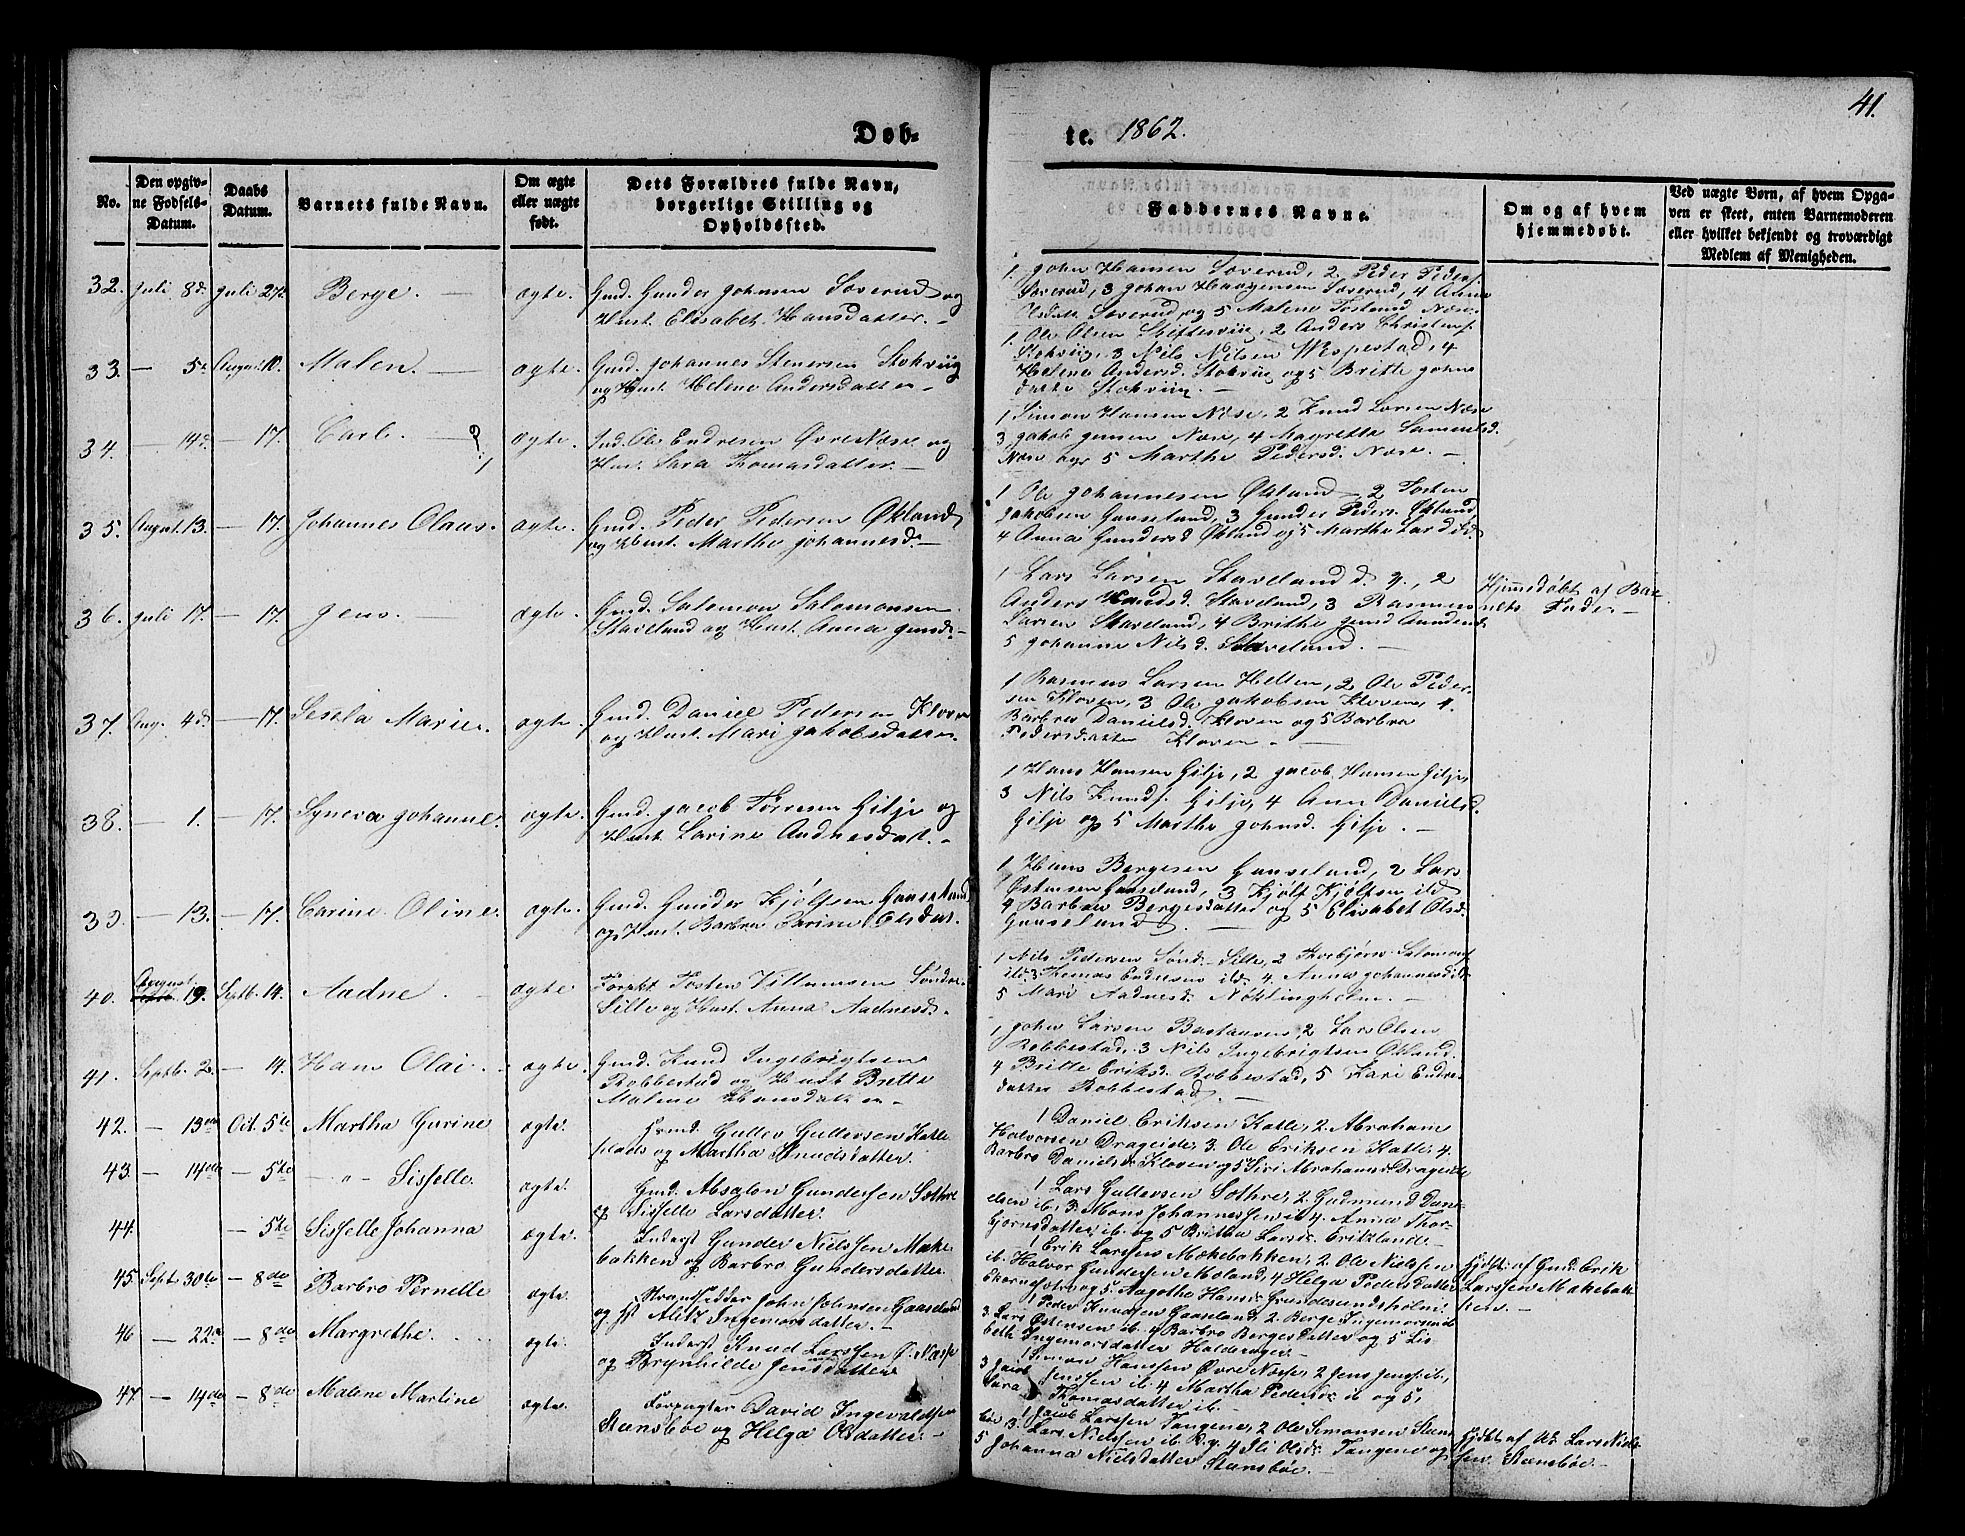 41.
Døb-
te. 1862.
No.
Den opgiv-
ne Fødsels-
Datum.
Daabs
Datum.
Barnets fulde Navn.
Om ægte
eller uægte
født.
Dets Forældres fulde Navn,
borgerlige Stilling og
Opholdssted.
Faddernes Navne.
Om og af hvem
hjemmedøbt.
Ved uægte Børn, af hvem Opga-
ven er skeet, enten Barnemoderen
eller hvilket bekjendt og troværdigt
Medlem af Menigheden.
32. Juli 8d. Juli 27d. Berge. — ægte. Gmd. Gunder Johnsen Søverud og
Hust. Elisabet Hansdatter. —
1, John Hansen Søverud, 2, Peder Peders.
Søverud, 3 Johan Haagensen Søverud, 4 Anna
Olsdatt. Søverud, og 5 Malene Næse.
33. — 5. August 10. Malen. — ægte. Gmd. Johannes Stenersen Stokviig
og Hust. Helene Andersdatter. —
1. Ole Olsen 2 Anders Christens.
Stokviig, 3 Nils Nilsen Wespestad, 4
Helene Andersd. Stokviig og 5 Britte Johns
datter Stokviig. —
34. — 14d. — 17. Carl. — ? ægte. Ind. Ole Endresen Øvre Næse og
Hus. Sara Thomasdatter. —
1 Simon Hansen Næse, 2 Knud Larsen Næse
3 Jakob Jensen Næse, 4 Magrette Samuelsd.
Næse og 5 Marthe Pedersd. Næse. —
35. August 13. — 17. Johannes Olaus. ægte. Gmd. Peder Pedersen Økland
og Hust. Martha Johannesd. —
1 Ole Johannesen Økland, 2 Tosten
Jakobsen Gaaseland, 3 Gunder Peders. Økland
4 Anna Gundersd Økland og 5 Martha Larsd ibd.
36. Juli 17. — 17. Jens. — ægte. Gmd. Salomon Salomonsen
Staveland og Hust. Anna Jensd. —
1 Lars Larsen Staveland d. y., 2
Anders Staveland, 3 Rasmus
Larsen Staveland, 4 Brithe Jensd
5 Johanne Nilsd. Staveland. —
Hjemmedøbt af Bar-
nets Fader —
37. Aug. 4d. — 17. Sesela Marie. ægte. Gmd. Daniel Pedersen Kloven
og Hust. Mari Jakobsdatter.
1 Rasmus Larsen Helten, 2 Ole Peder-
sen Kloven, 3 Ole Jakobsen Kloven, 4.
Barbro Danielsd. Kloven og 5 Barbra
Pedersdatter Kloven. —
38. — 1. — 17. Syneva Johanne. ægte. Gmd. Jacob Tørresen Gilje og
Hust. Larine Andresdat. —
1 Hans Hansen Gilje, 2 Jacob Hansen Gilje,
3 Nils Knuds. Gilje, 4 Ann Danielsd.
Gilje og 5 Marthe Johnsd. Gilje. —
39. — 13. — 17. Carine Oline. ægte. Gmd. Gunder Kjølfsen Gaaseland
og Hust. Barbra Carine Olsdat.
1, Hans Bergesen Gaaseland, 2 Lars
Østensen Gaaseland, 3 Kjølf Kjølfsen ibd
4 Barbra Bergesdatter og 5 Elisabet Olsd.
Gaaseland. —
40. August 19. Septb. 14. Aadne. — ægte Forpkt Tosten Villumsen Søndre
Sille og Hust. Anna Aadnesd.
1 Nils Pedersen Sønd. Sille, 2 Thorbjørn Salomons
ibd 3 Thomas Endresen ibd. 4 Anna Johannesd ibd
5 Mari Aadnesd. Nøklingholm. —
41. Septb. 2. — 14. Hans Olai. ægte. Gmd. Knud Ingebrigtsen
Robbestad og Hust Britte
Malene Hansdatter —
1 John Larsen Bastauven, 2 Lars Olsen
Robbestad, 3 Nils Ingebrigtsen Økland
4 Britte Eriksd. Robbestad, 5 Kari Endres
datter Robbestad. —
42. — 13de Oct. 5te Martha Gurine ægte. Gmd. Gullev Gullevsen Katle
plads og Martha Knudsdatter.
1 Daniel Eriksen Katle, 2. Abraham
Halvorsen Drageide, 3. Ole Eriksen Katle, 4
Barbro Danielsdr Kloven og 5 Siri Abrahamsdr Drageide
43. — 14de — 5te —"— Sisselle. ægte. Gmd. Absalon Gundersen Sothre
og Sisselle Larsdatter.
1 Lars Gullevsen Sothre, 2. Gudmund Dani-
elsen ib. 3. Mons Johannessen ib 4. Anna Thor-
bjørnsdatter ib. og 5 Britha Larsdr Eriksland. —
44. — 5te Sisselle Johanna ægte. Inderst Gunder Nielssen Make-
bakken og Barbro Gundersdatter.
1 Erik Larssen Møkebakken, 2 Ole Nielsen
ib. Halvor Gundersen Moland, 4 Helga Pedersdatter
og 5. Aagotha Hansdr
45. Sept. 30te — 8de Barbro Pernelle ægte. Strandsidder John Johnsen Gaaseland
og Hst Alitz Ingemorsdatter. —
1 Peder Knudsen Gaaseland, 2. Berge Ingemorsen ib
3. Lars Østensen ib. 4 Barbro Bergesdatter og 5 Lis
beth Ingemorsdatter
Hjdøbt af Gmd. Erik
Larssen Makebak
ken. —
46 — 22de — 8de Margrethe. ægte. Inderst Knud Larssen Ø. Næsse
og Brynhilde Jensdatter
1 Simon Hanssen Øvre Næse, 2 Jens Jenss. ib.
3 Jacob Jenssen ib. 4 Martha Pedersdr ib og 5,
Sara Thomasdatter ib. —
47 — 14de — 8de Malene Martine ægte. Forpagter David Ingevaldsen
Steensbøe og Helga Olsdatter. —
1 Jacob Larssen Tangene, 2 Ole Simonsen Steens
bøe 3. Lars Nielssen ib. 4 Ili Olsdr Tangene og
5 Johanna Nielsdatter Steensbøe. —
Hjdøbt af Lars Niels-
sen Steensbøe. —